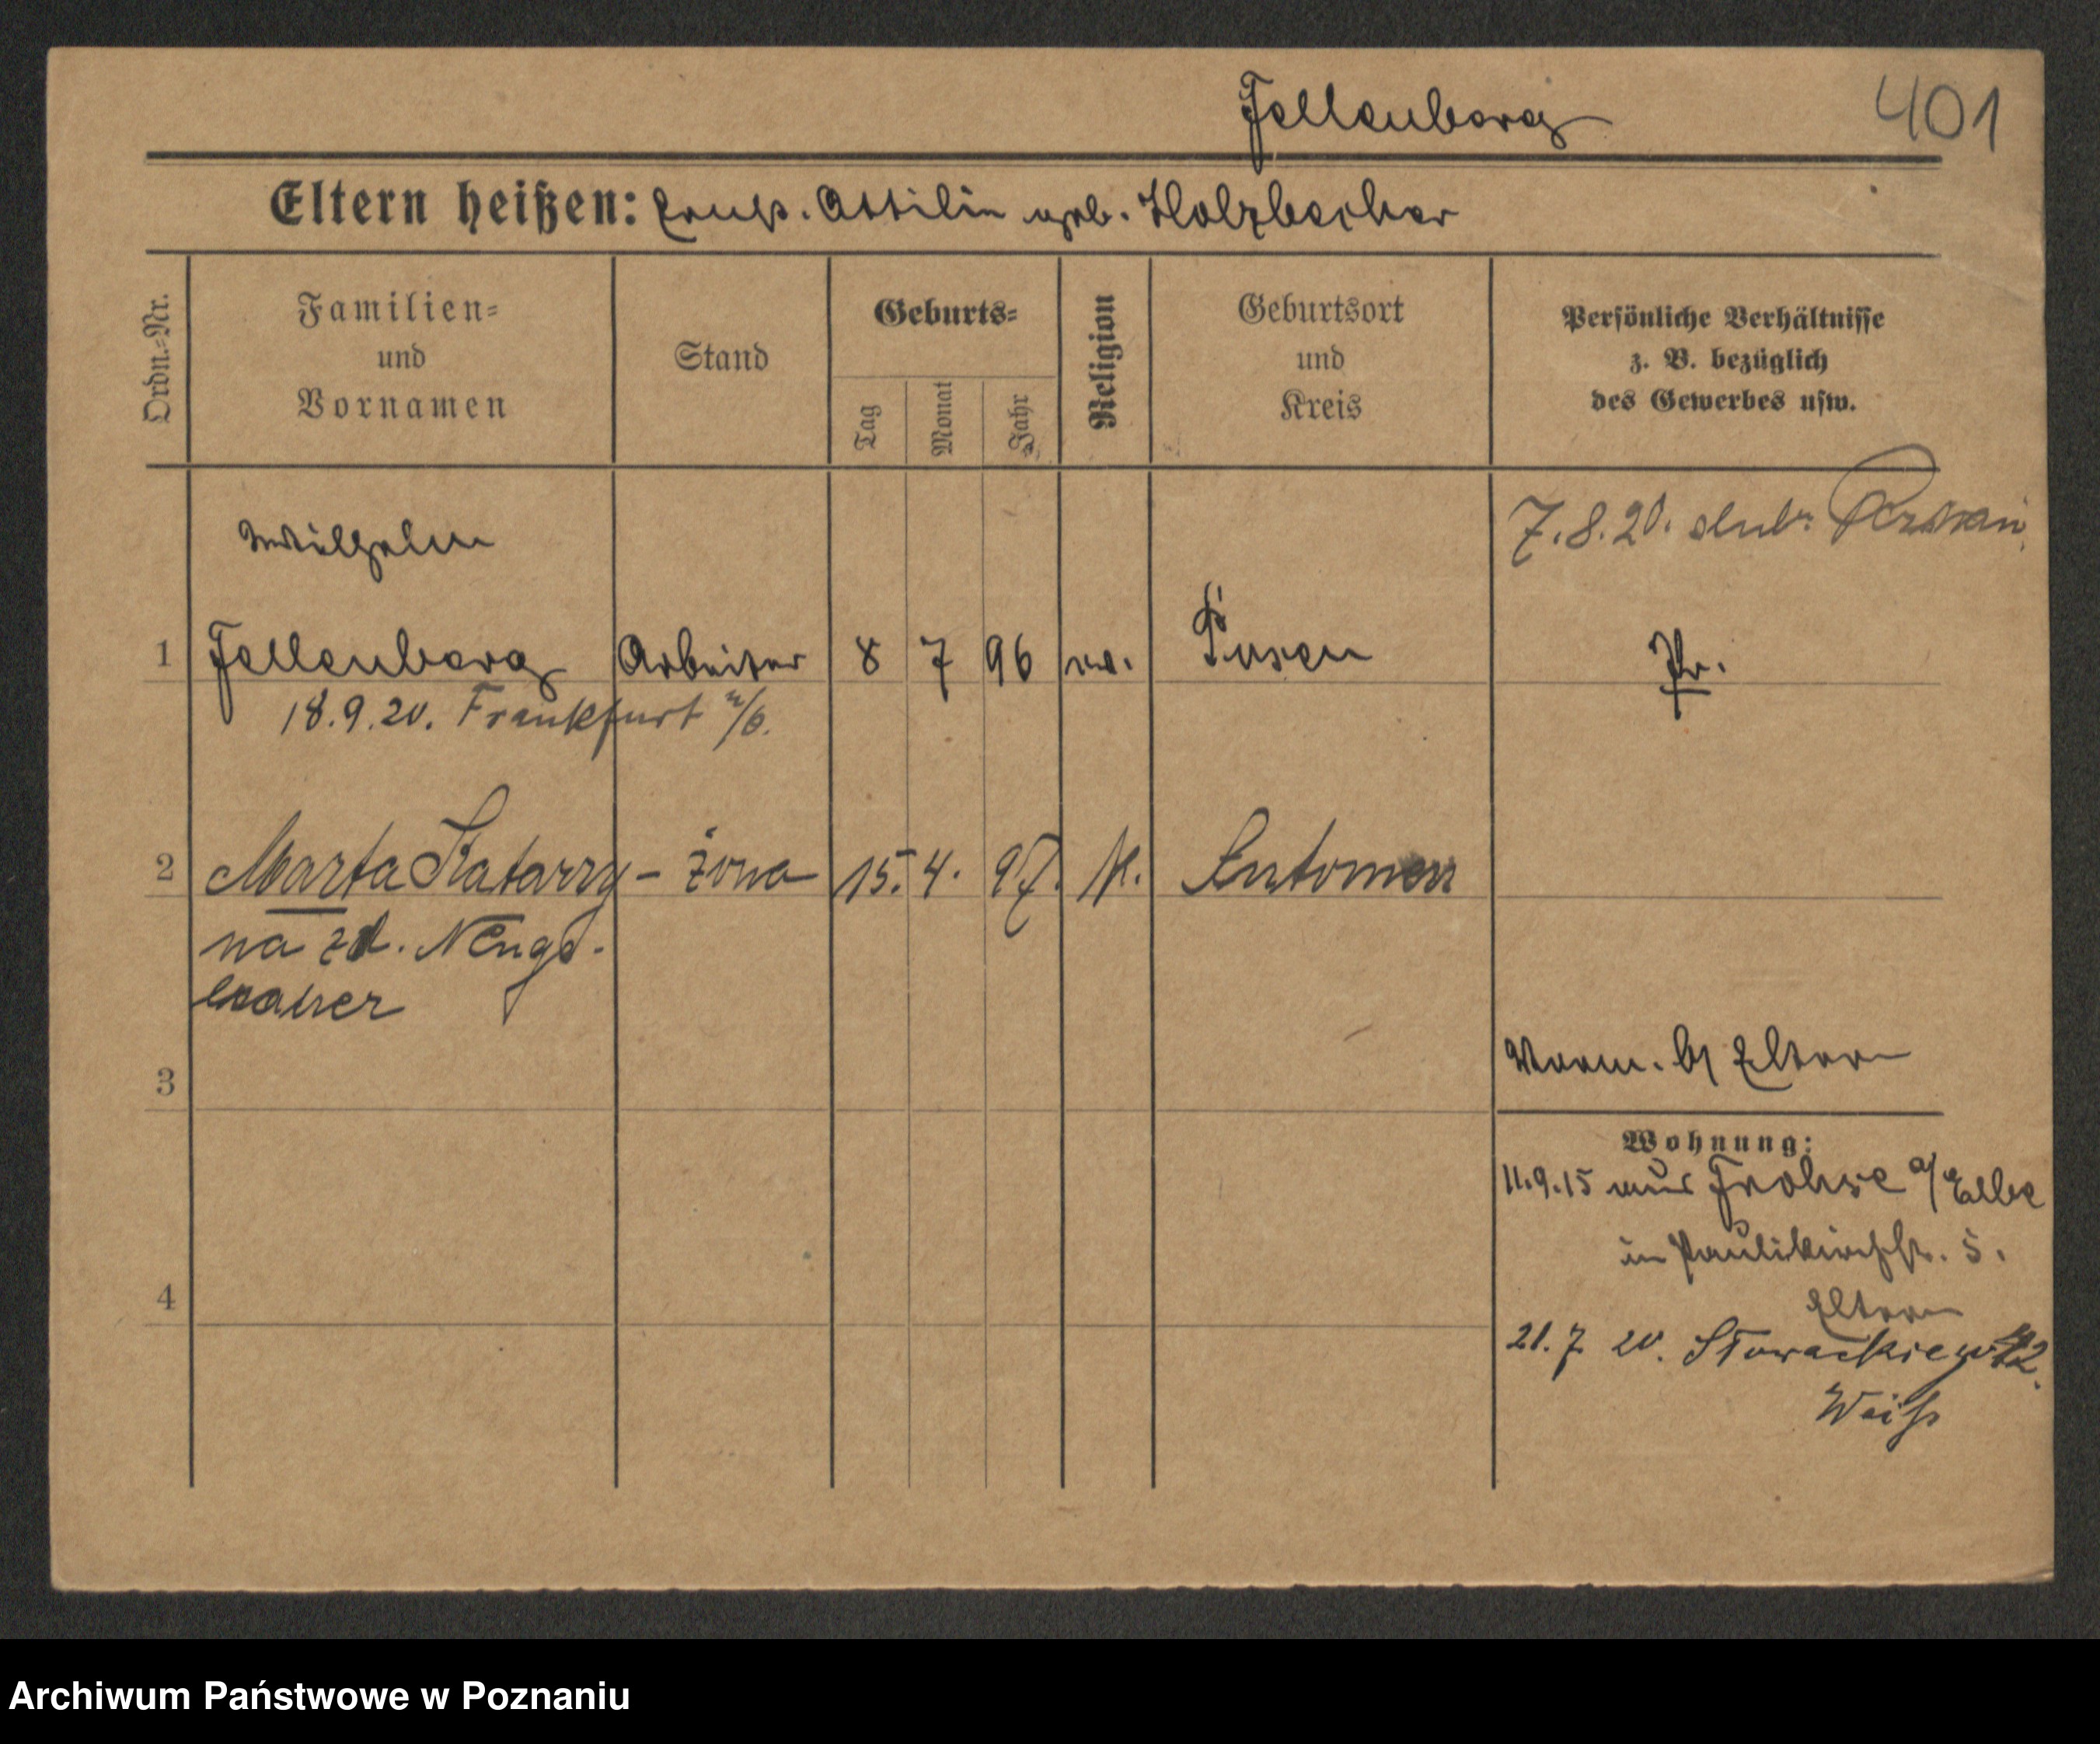 Fellenberg 401
Eltern heißen: Ernst. Ottilie geb. Holzbecher
Ordn.=Nr. Familien= und Vornamen Stand Geburts= Tag Monat Jahr Religion Geburtsort und Kreis Persönliche Verhältnisse z. B. bezüglich des Gewerbes usw.
7.8.20. ślub:
Wilhelm
1 Fellenberg Arbeiter 8 7 96 ev. Posen Pr.
18.9.20. Frankfurt a/O.
2 Marta Katarzy- żona 15. 4. 97. K.
na zd.
3
Vorm. b/ Eltern
Wohnung:
11.9.15 aus Frohse a/Elbe
in Paulikirchstr. 5.
4
Eltern
21.7 20. Słowackiego
Weiß
Archiwum Państwowe w Poznaniu